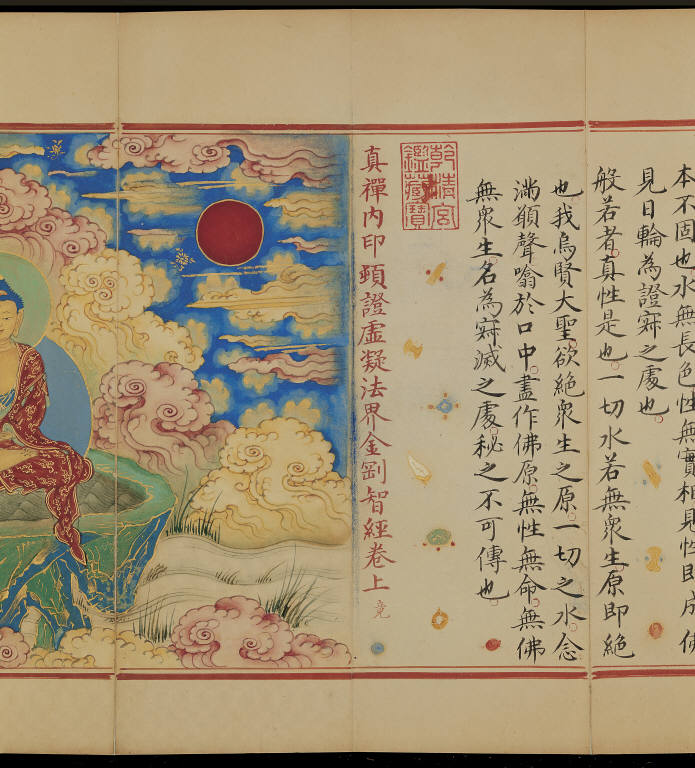 本不固也水無長色性無實相見性即成佛
見日輪為證寂之處也
般若者真性是也一切水若無衆生原即絕
也我烏賢大聖欲絕衆生之原一切之水念
滿頟聲噏於口中盡作佛原無性無命無佛
無衆生名為寂滅之處秘之不可傳也
乾清宮
鑑藏寶
真禪內印頓證虛凝法界金剛智經卷上 竟